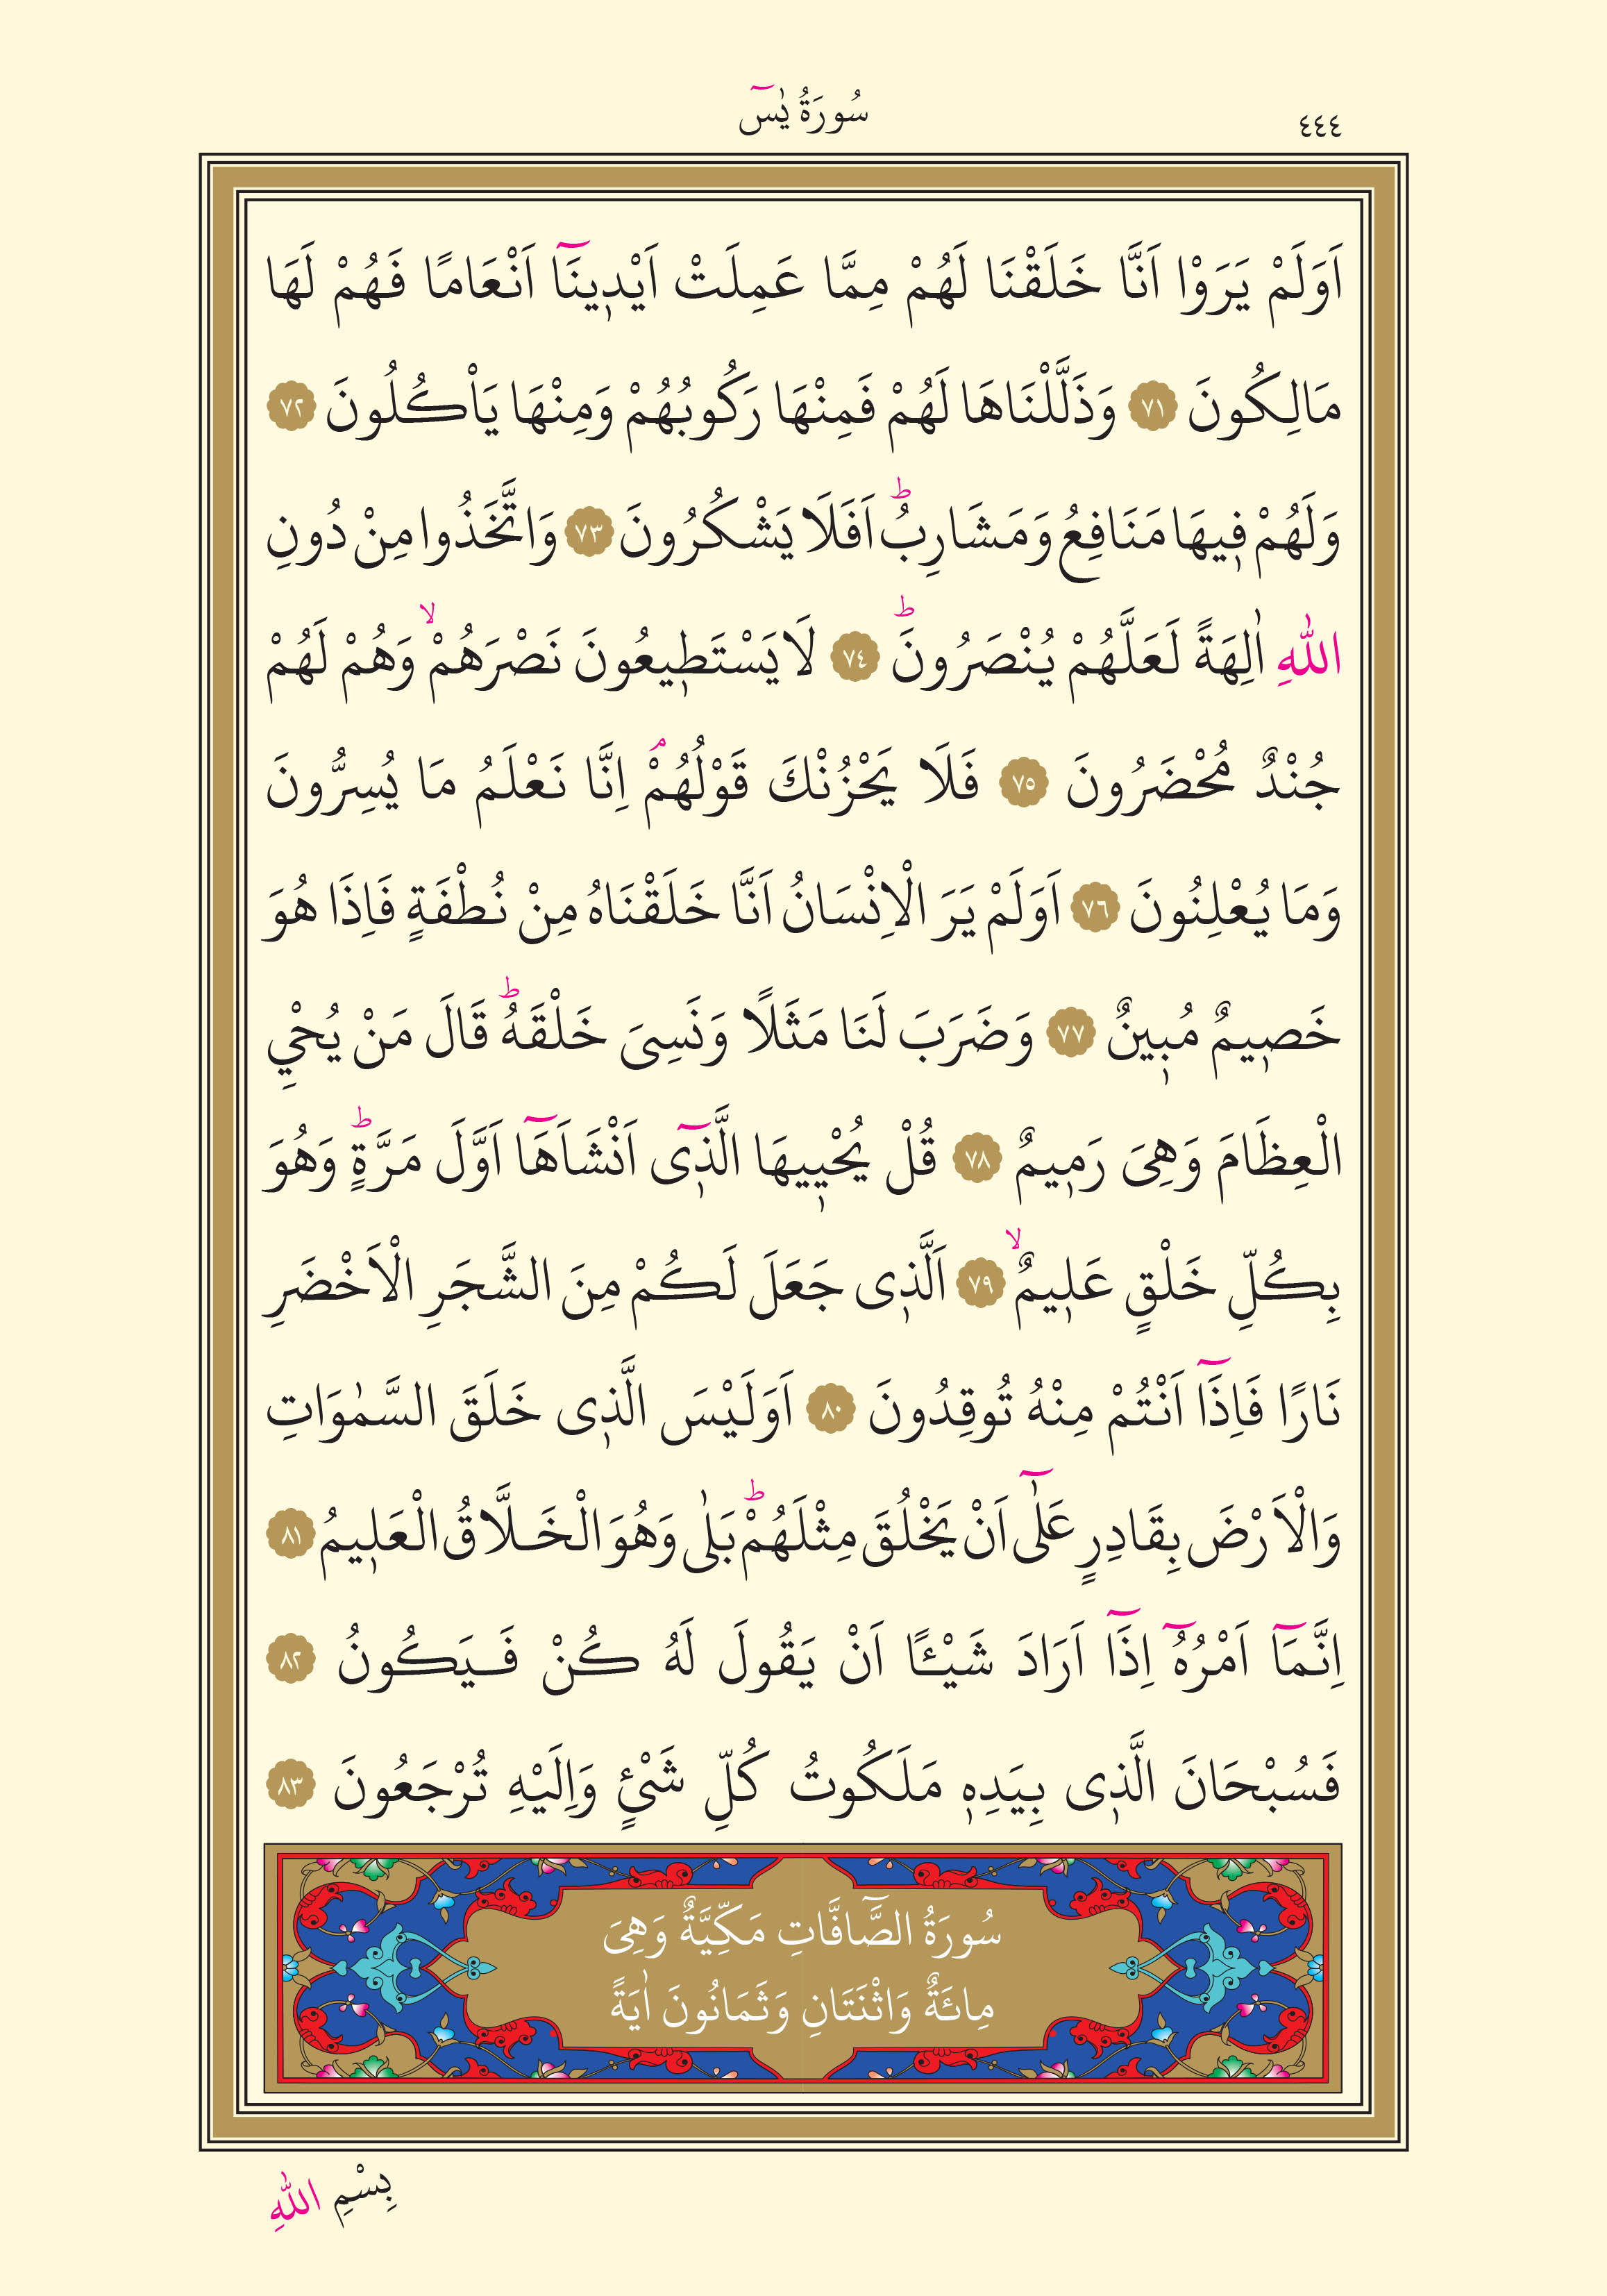 ٤٤٤
سُورَةُ يٰسٓ
اَوَلَمْ يَرَوْا اَنَّا خَلَقْنَا لَهُمْ مِمَّا عَمِلَتْ اَيْدٖينَٓا اَنْعَامًا فَهُمْ لَهَا
مَالِكُونَ ٧١ وَذَلَّلْنَاهَا لَهُمْ فَمِنْهَا رَكُوبُهُمْ وَمِنْهَا يَاْكُلُونَ ٧٢
وَلَهُمْ فٖيهَا مَنَافِعُ وَمَشَارِبُؕ اَفَلَا يَشْكُرُونَ ٧٣ وَاتَّخَذُوا مِنْ دُونِ
اللّٰهِ اٰلِهَةً لَعَلَّهُمْ يُنْصَرُونَؕ ٧٤ لَا يَسْتَطٖيعُونَ نَصْرَهُمْۙ وَهُمْ لَهُمْ
جُنْدٌ مُحْضَرُونَ ٧٥ فَلَا يَحْزُنْكَ قَوْلُهُمْۘ اِنَّا نَعْلَمُ مَا يُسِرُّونَ
وَمَا يُعْلِنُونَ ٧٦ اَوَلَمْ يَرَ الْاِنْسَانُ اَنَّا خَلَقْنَاهُ مِنْ نُطْفَةٍ فَاِذَا هُوَ
خَصٖيمٌ مُبٖينٌ ٧٧ وَضَرَبَ لَنَا مَثَلًا وَنَسِىَ خَلْقَهُؕ قَالَ مَنْ يُحْيِ
الْعِظَامَ وَهِىَ رَمٖيمٌ ٧٨ قُلْ يُحْيٖيهَا الَّذٖٓى اَنْشَاَهَٓا اَوَّلَ مَرَّةٍؕ وَهُوَ
بِكُلِّ خَلْقٍ عَلٖيمٌۙ ٧٩ اَلَّذٖى جَعَلَ لَكُمْ مِنَ الشَّجَرِ الْاَخْضَرِ
نَارًا فَاِذَٓا اَنْتُمْ مِنْهُ تُوقِدُونَ ٨٠ اَوَلَيْسَ الَّذٖى خَلَقَ السَّمٰوَاتِ
وَالْاَرْضَ بِقَادِرٍ عَلٰٓى اَنْ يَخْلُقَ مِثْلَهُمْؕ بَلٰى وَهُوَ الْخَلَّاقُ الْعَلٖيمُ ٨١
اِنَّمَٓا اَمْرُهُٓ اِذَٓا اَرَادَ شَيْـًٔا اَنْ يَقُولَ لَهُ كُنْ فَيَكُونُ ٨٢
فَسُبْحَانَ الَّذٖى بِيَدِهٖ مَلَكُوتُ كُلِّ شَىْءٍ وَاِلَيْهِ تُرْجَعُونَ ٨٣
سُورَةُ الصَّٓافَّاتِ مَكِّيَّةٌ وَهِىَ
مِائَةٌ وَاثْنَتَانِ وَثَمَانُونَ اٰيَةً
بِسْمِ اللّٰهِ